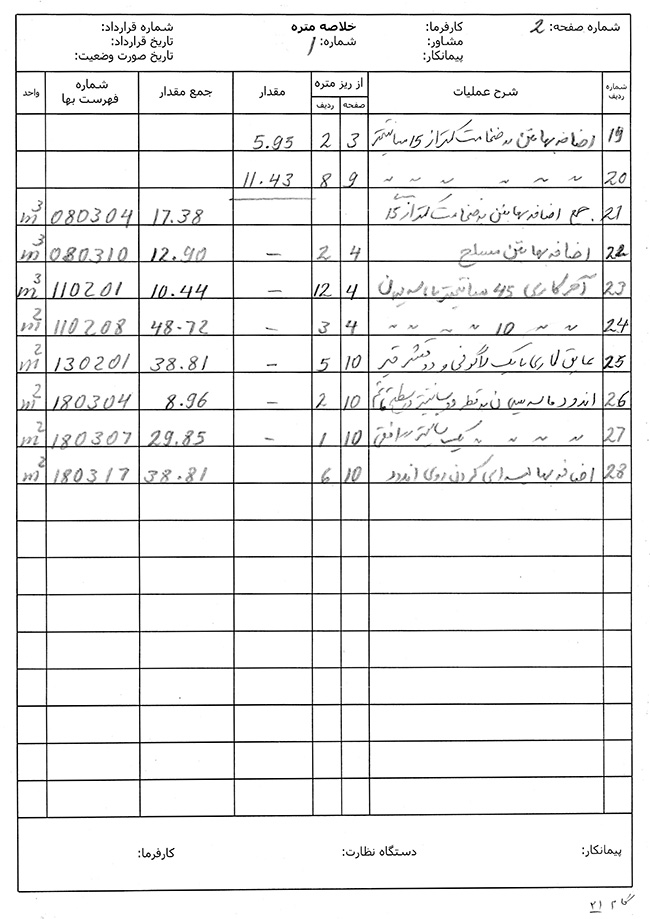 شماره صفحه: 2 کارفرما: خلاصه متره شماره قرارداد:
مشاور: شماره: 1 تاریخ قرارداد:
پیمانکار: تاریخ صورت وضعیت:
شماره ردیف شرح عملیات از ریز متره صفحه ردیف مقدار جمع مقدار شماره فهرست بها واحد
19 اضافه بها بتن به ضخامت کمتر از 15 سانتیمتر 3 2 5.95
20 〃 〃 〃 〃 〃 9 8 11.43
21 جمع اضافه بها بتن به ضخامت کمتر از 15 17.38 080304 m3
22 اضافه بها بتن مسلح 4 2 - 12.90 080310 m3
23 آجر کاری 45 سانتیمتر با ماسه سیمان 4 12 - 10.44 110201 m3
24 〃 〃 10 〃 〃 〃 〃 4 3 - 48.72 110208 m2
25 عایق کاری با یک لا گونی و دو قشر قیر 10 5 - 38.81 130201 m2
26 اندود ماسه سیمان به قطر دو سانتیمتر در سطوح قائم 10 2 - 8.96 180304 m2
27 〃 〃 〃 〃 〃 یک سانتیمتر افقی 10 1 - 29.85 180307 m2
28 اضافه بها لیسه ای کردن روی اندود 10 6 38.81 180317 m2
پیمانکار: دستگاه نظارت: کارفرما:
21